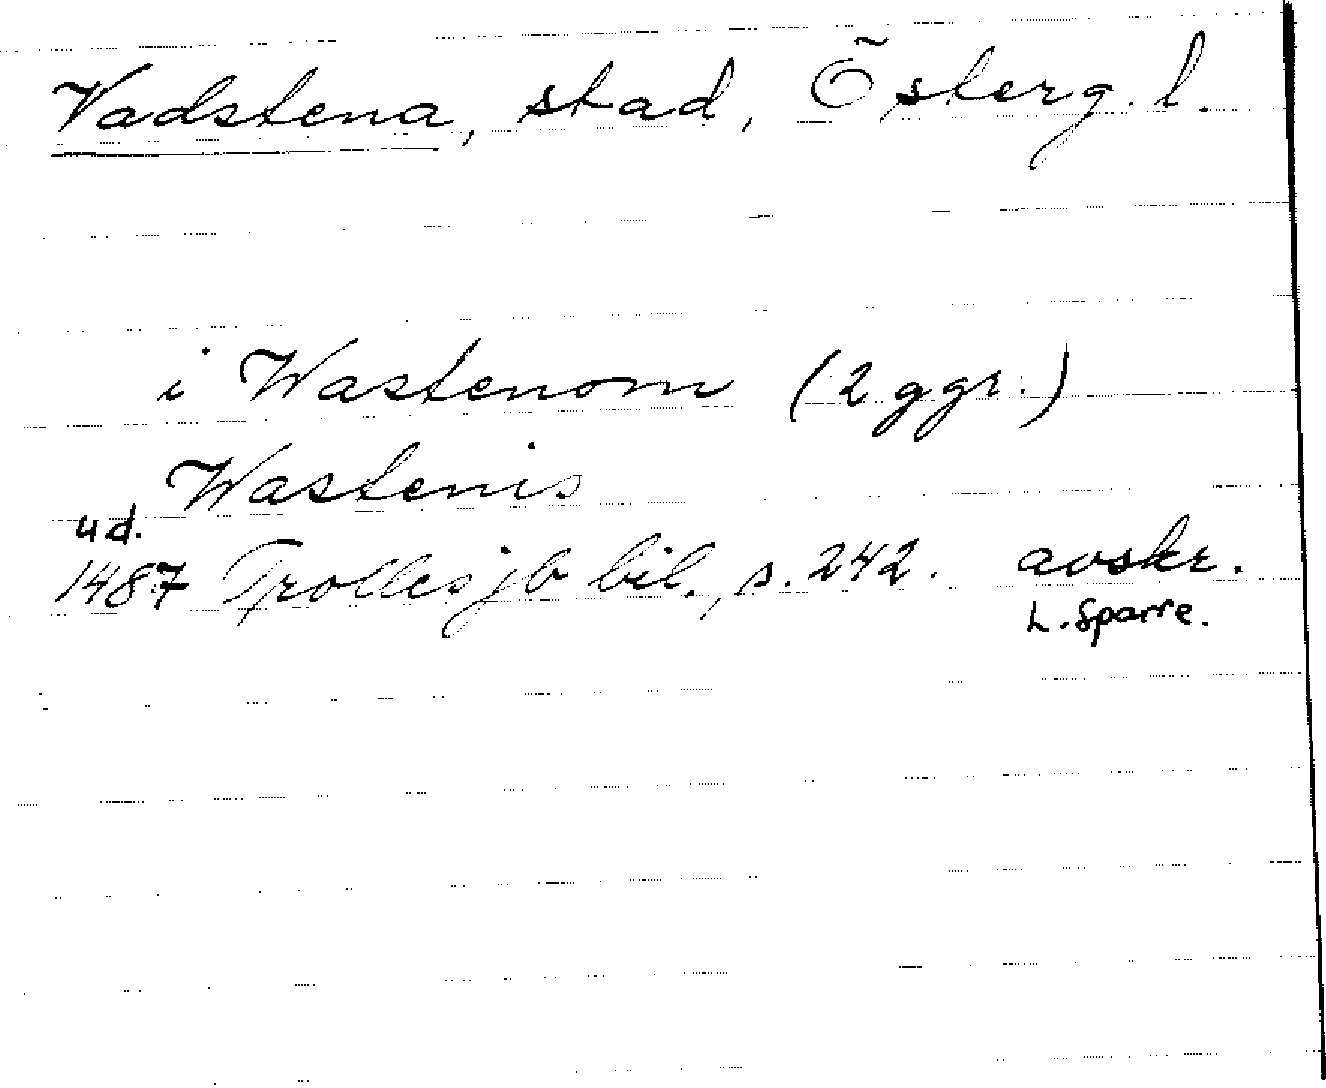 Vadstena, stad, Österg. l.
i Wastenom (2 ggr.)
Wastenis
u.d.
1487 Trolles jb bil., s. 242. avskr.
L. Sparre.